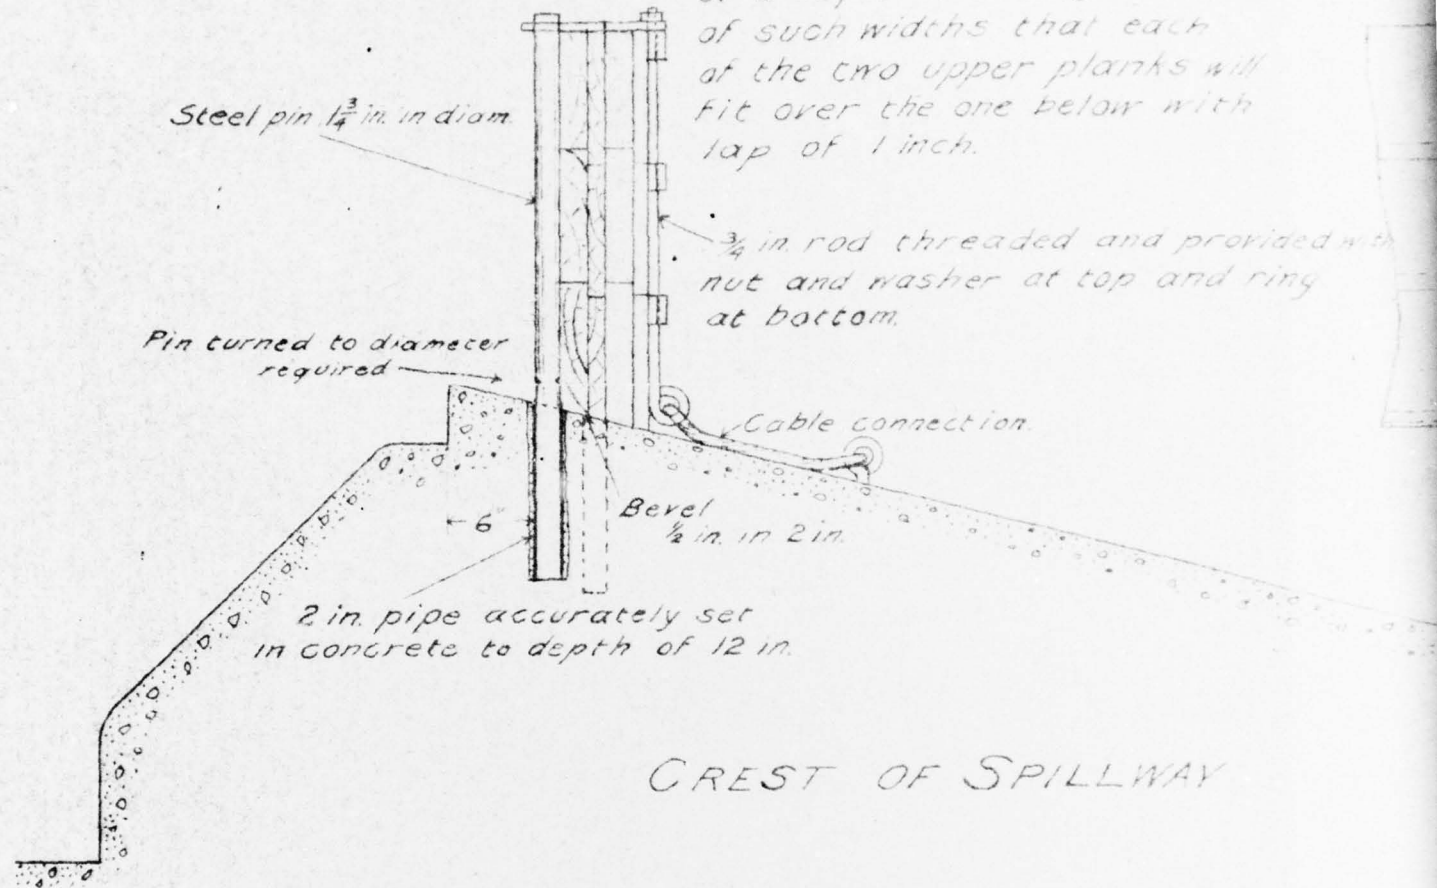 of such widths that each
of the two upper planks will
fit over the one below with
lap of 1 inch.
Steel pin 1 3/4 in. in diam.
3/4 in. rod threaded and provided with
nut and washer at top and ring
at bottom.
Pin turned to diameter
required
Cable connection.
6"
Bevel
1/2 in. in 2 in.
2 in. pipe accurately set
in concrete to depth of 12 in.
CREST OF SPILLWAY